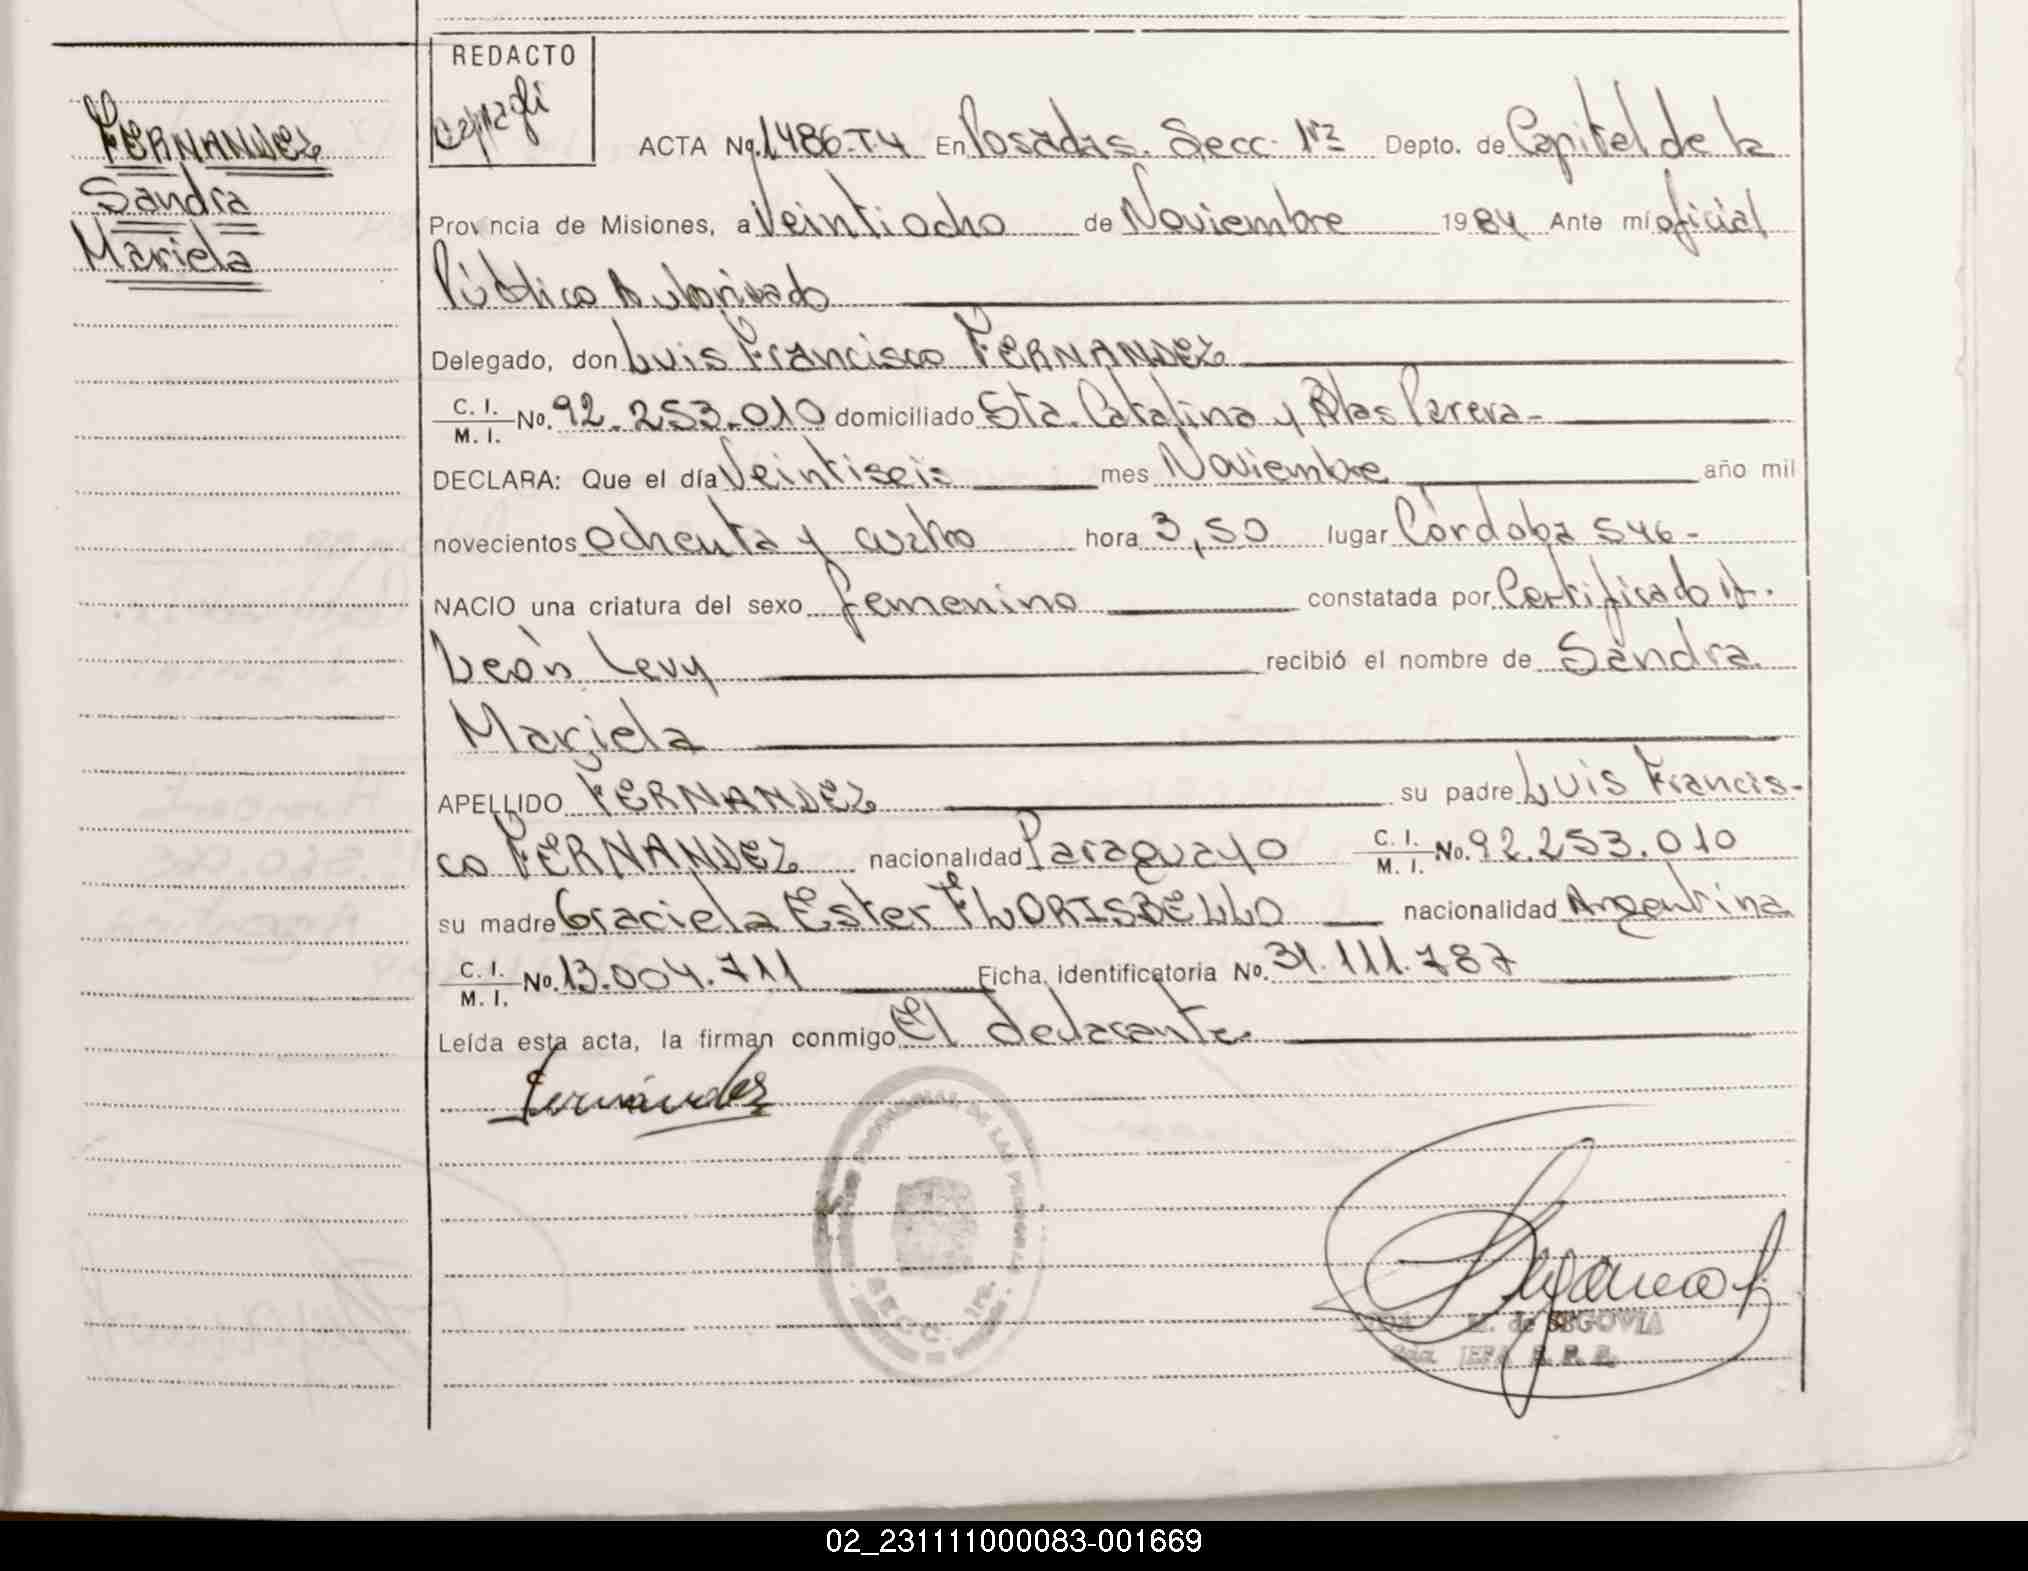 FERNANDEZ
Sandra
Mariela
REDACTO
ACTA No. 1486-T4 En Posadas. Secc. 1ra Depto. de Capital de la
Provincia de Misiones, a Veintiocho de Noviembre 1984 Ante mí oficial
Público Autorizado
Delegado, don Luis Francisco FERNANDEZ
C. I. / M. I. No. 92.253.010 domiciliado Sta. Catalina y Blas Parera-
DECLARA: Que el día Veintiseis mes Noviembre año mil
novecientos ochenta y cuatro hora 3,50 lugar Córdoba 546-
NACIO una criatura del sexo femenino constatada por Certificado A.
León Levy recibió el nombre de Sandra
Mariela
APELLIDO FERNANDEZ su padre Luis Francis-
co FERNANDEZ nacionalidad Paraguayo C. I. / M. I. No. 92.253.010
su madre Graciela Ester FLORISBELLO nacionalidad Argentina
C. I. / M. I. No. 13.004.711 Ficha identificatoria No. 31.111.787
Leída esta acta, la firman conmigo El declarante
Fernández
PROVINCIAL DE LAS PERSONAS
SECC. 1ra.
M. de SEGOVIA
2da. JEFA R. P. P.
02_231111000083-001669